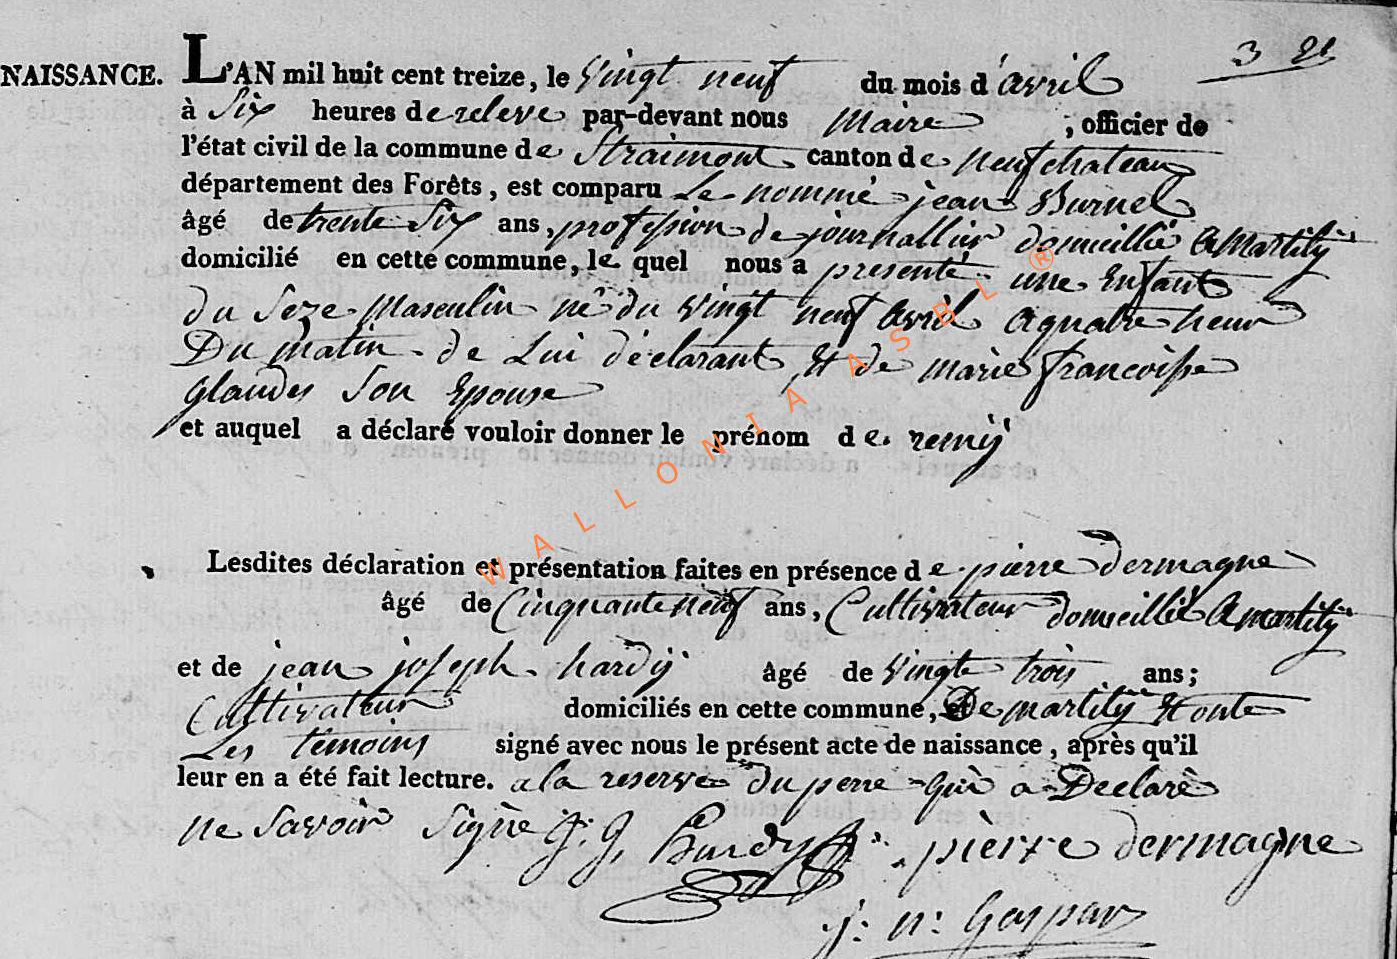 3 21
NAISSANCE. L'AN mil huit cent treize, le vingt neuf du mois d'avril
à Six heures de releve par-devant nous Maire , officier de
l'état civil de la commune de Straimont canton de neufchateau
département des Forêts, est comparu Le nommé jean Burnel
âgé de trente Six ans, profession de journallier domicillié a Martilÿ
domicilié en cette commune, le quel nous a presenté une Enfant
du Sexe Masculin né du vingt neuf avril a quatre heur
Du matin de Lui déclarant Et de marie francoisse
glaudes Son Epouse
et auquel a déclaré vouloir donner le prénom de remÿ
Lesdites déclaration et présentation faites en présence de pierre dermagne
âgé de Cinquante neuf ans, Cultivateur domicillié a martilÿ
et de jean joseph hardÿ âgé de vingte trois ans;
Cultivateur domiciliés en cette commune, De martilÿ Et onte
Les témoins signé avec nous le présent acte de naissance, après qu'il
leur en a été fait lecture. a la reserve du perre qui a Declaré
ne Savoir Signé J. J. hardy pierre dermagne
j: n: Gaspar
WALLONIA ASBL ®